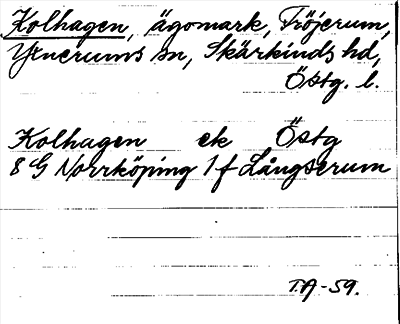 Kolhagen, ägomark, Fröjerum,
Yxnerums sn, Skärkinds hd,
Östg. l.
Kolhagen ek Östg
8 G Norrköping 1 f Långserum
T.A-59.